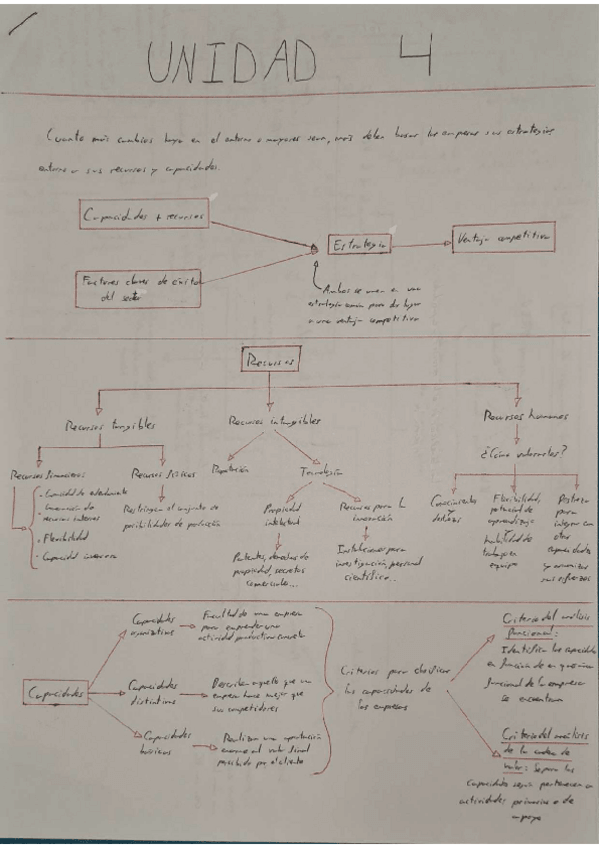 UNIDAD 4
Cuanto más cambios haya en el entorno o mayores sean, más deben basar las empresas sus estrategias
entorno a sus recursos y capacidades.
Capacidades + recursos
Factores claves de éxito
del sector
Estrategia
Ventaja competitiva
Ambos se unen en una
estrategia común para dar lugar
a una ventaja competitiva
Recursos
Recursos tangibles
Recursos intangibles
Recursos humanos
Recursos financieros
· Capacidad de endeudamiento
· Generación de
recursos internos
· Flexibilidad
· Capacidad inversora
Recursos físicos
Restringen el conjunto de
posibilidades de producción
Reputación
Tecnología
Propiedad
intelectual
Patentes, derechos de
propiedad, secretos
comerciales...
Recursos para la
innovación
Instalaciones para
investigación, personal
científico...
¿Cómo valorarlos?
Conocimientos
y destrezas
Flexibilidad,
potencial de
aprendizaje
y
habilidad de
trabajo en
equipo
Destreza
para
integrar con
otras
capacidades
y armonizar
sus esfuerzos
Capacidades
Capacidades
organizativas
Facultad de una empresa
para emprender una
actividad productiva concreta
Capacidades
distintivas
Describen aquello que una
empresa hace mejor que
sus competidores
Capacidades
básicas
Realizan una aportación
enorme al valor final
percibido por el cliente
Criterios para clasificar
las capacidades de
las empresas
Criterio del análisis
funcional:
Identifica las capacidades
en función de en qué área
funcional de la empresa
se encuentran
Criterio del análisis
de la cadena de
valor: Separa las
capacidades según pertenezcan a
actividades primarias o de
apoyo